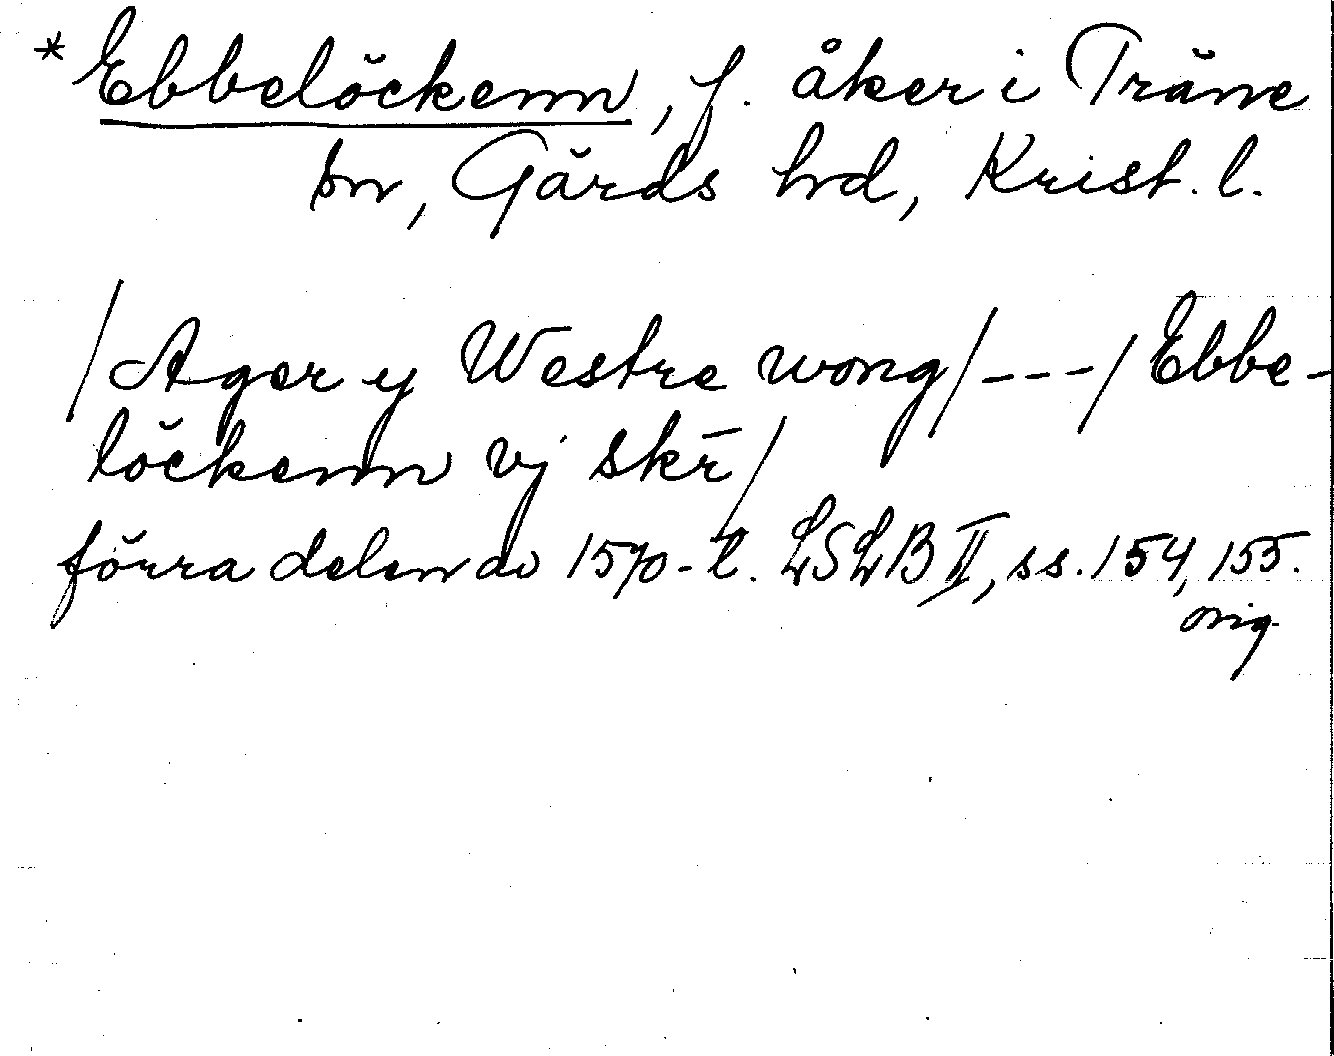 *Ebbelöckenn, f. åker i Träne
sn, Gärds hd, Krist. l.
/Ager y Westre wong/---/Ebbe-
löckenn vj skr̄/
förra delen av 1570-t. LSLB II, ss. 154, 155.
orig.